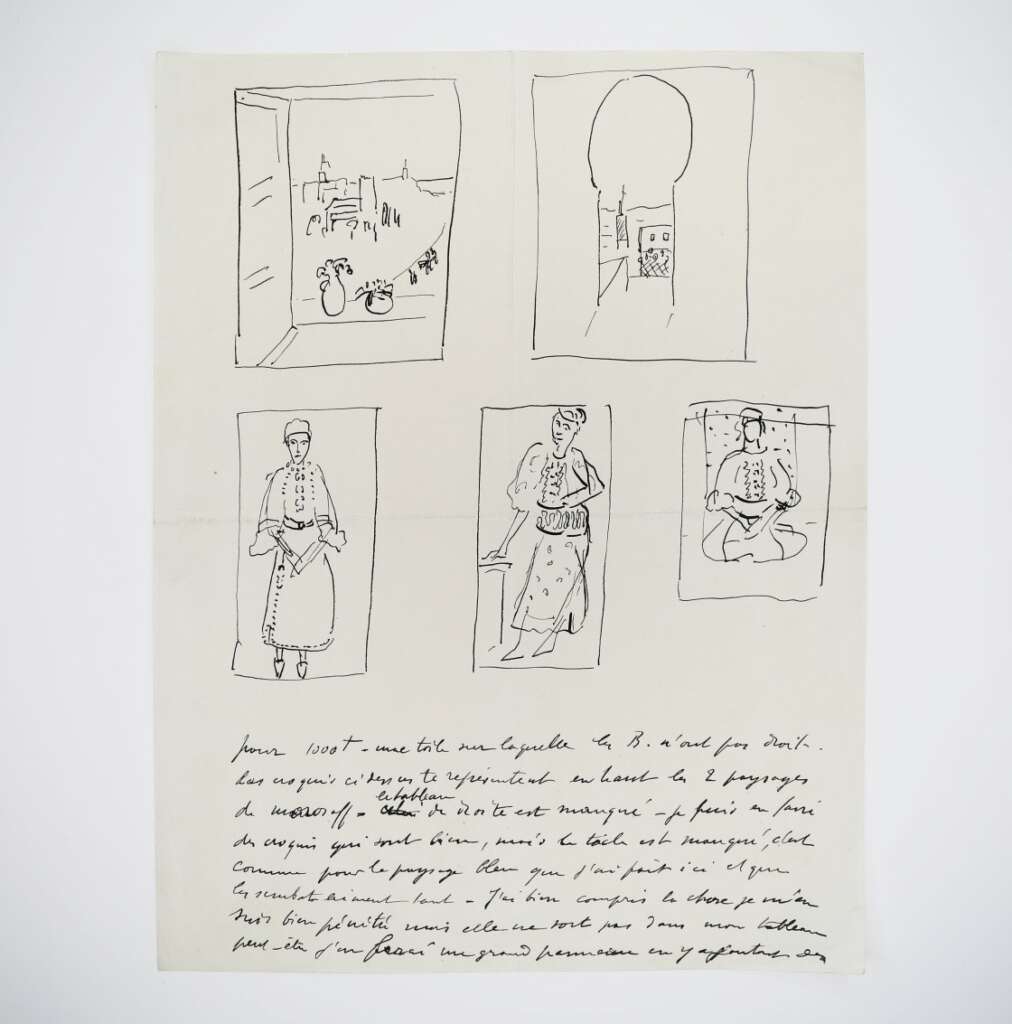 pour 1000f - une toile sur laquelle les B. n'ont pas droit.
Les croquis ci dessus te représentent en haut les 2 paysages
de morosoff - le tableau de droite est manqué - je puis en faire
des croquis qui sont bien, mais la toile est manqué, c'est
comme pour le paysage bleu que j'ai fait ici et que
les sembat aiment tant - J'ai bien compris la chose je m'en
suis bien pénétré mais elle ne sort pas dans mon tableau
peut-être j'en ferai un grand panneau en y ajoutant des